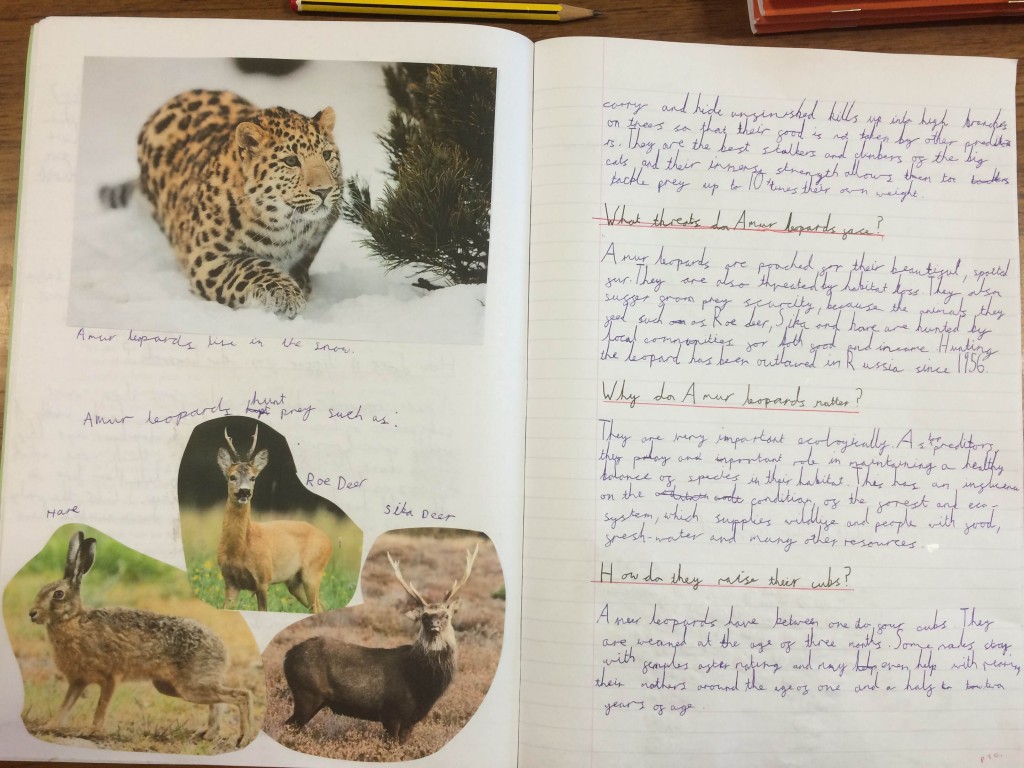 Amur leopards live in the snow.
Amur leopards hunt prey such as:
Roe Deer
Hare
Sika Deer
carry and hide unfinished kills up into high branches
on trees so that their food is not taken by other predato
rs. They are the best stalkers and climbers of the big
cats and their immense strength allows them to
tackle prey up to 10 times their own weight.
What threats do Amur leopards face?
Amur leopards are poached for their beautiful, spotted
fur. They are also threated by habitat loss. They also
suffer from prey scarcity, because the animals they
feed such as Roe deer, Sika and hare are hunted by
local communities for both food and income. Hunting
the leopard has been outlawed in Russia since 1956.
Why do Amur leopards matter?
They are very important ecologically. As top preditors,
they play and important role in maintaining a healthy
balance of species in their habitat. This has an influence
on the condition of the forrest and eco-
system, which supplies wildlife and people with food,
fresh-water and many other resources.
How do they raise their cubs?
Amur leopards have between one to four cubs. They
are weaned at the age of three months. Some males stay
with females after mating and may even help with
their mothers around the age of one and a half to two
years of age.